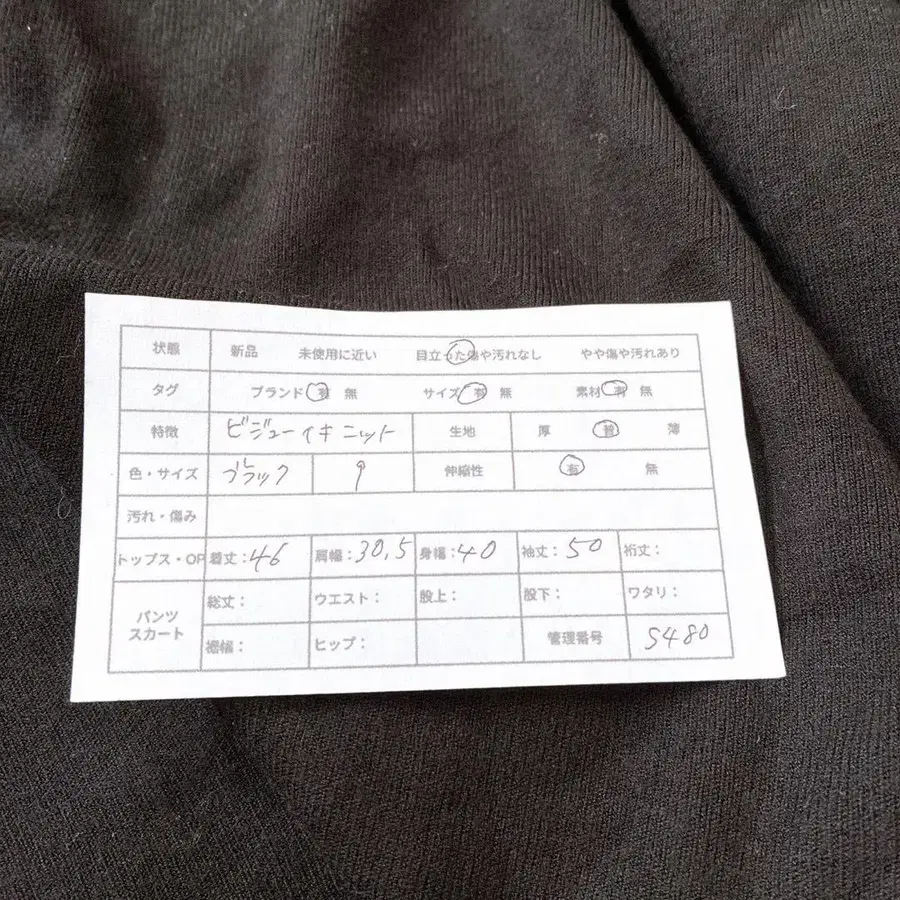 状態 新品 未使用に近い 目立った傷や汚れなし やや傷や汚れあり
タグ ブランド 有 無 サイズ 有 無 素材 有 無
特徴 ビジューイキニット 生地 厚 普 薄
色・サイズ ブラック 9 伸縮性 有 無
汚れ・傷み
トップス・OP 着丈:46 肩幅:30.5 身幅:40 袖丈:50 裄丈:
パンツ スカート 総丈: ウエスト: 股上: 股下: ワタリ:
裾幅: ヒップ: 管理番号 S480